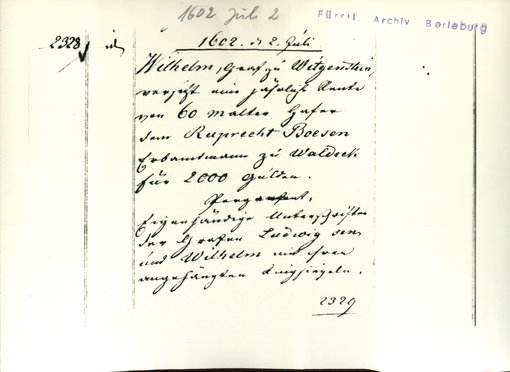 1602 Juli 2
Fürstl. Archiv Berleburg
2328
1602. d. 2. Juli
Wilhelm, Graf zu Witgenstein,
versetzt eine jährliche Rente
von 60 malter Hafer
dem Ruprecht Boesen
Erbamtmann zu Waldeck
für 2000 Gulden.
Pergament,
Eigenhändige Unterschriften
der Grafen Ludwig sen.
und Wilhelm mit ihren
angehängten Ringsiegeln.
2329